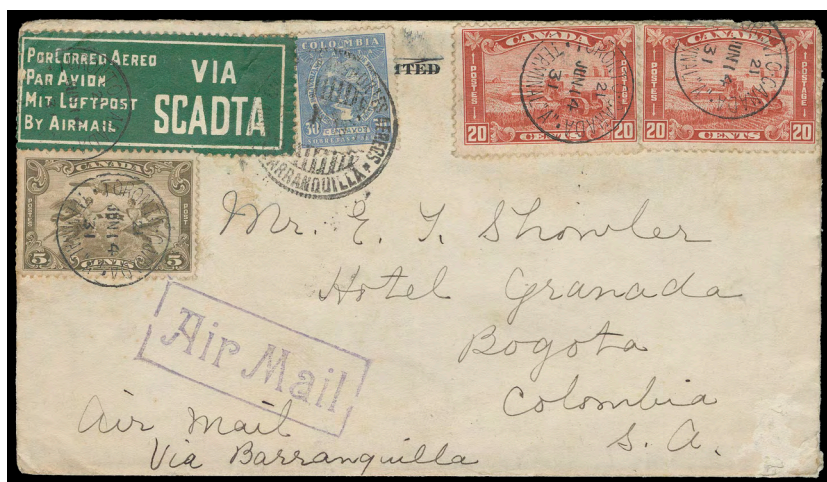 POR CORREO AEREO
PAR AVION
MIT LUFTPOST
BY AIRMAIL
VIA
SCADTA
COLOMBIA
30 CENTAVOS
BARRANQUILLA
ITED
CANADA
POSTES POSTAGE
20 CENTS 20
TORONTO CANADA
TERMINAL A
21
JUN 14
31
CANADA
POSTES POSTAGE
20 CENTS 20
21
JUN 14
31
5 CENTS 5
JUN 14
31
Mr. E. T. Showler
Hotel Granada
Bogota
Colombia
S. A.
Air Mail
Air Mail
Via Barranquilla